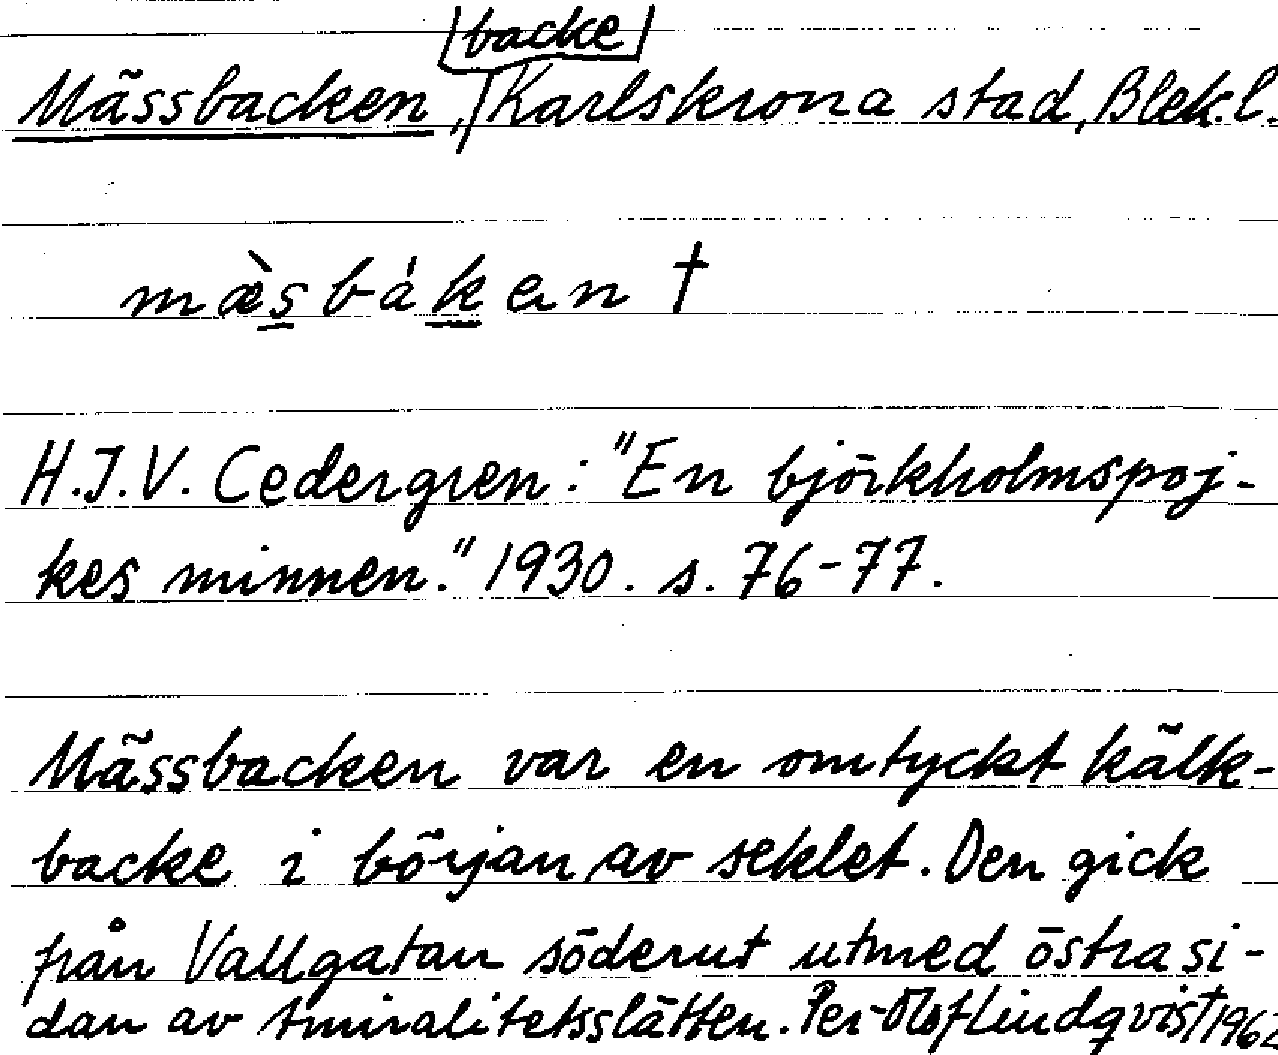 backe
Mässbacken, Karlskrona stad, Blek.l.
mæ̀sbákan †
H.J.V. Cedergren: "En björkholmspoj-
kes minnen." 1930. s. 76-77.
Mässbacken var en omtyckt kälk-
backe i början av seklet. Den gick
från Vallgatan söderut utmed östra si-
dan av Amiralitetsslätten. Per-Olof Lindqvist 1962